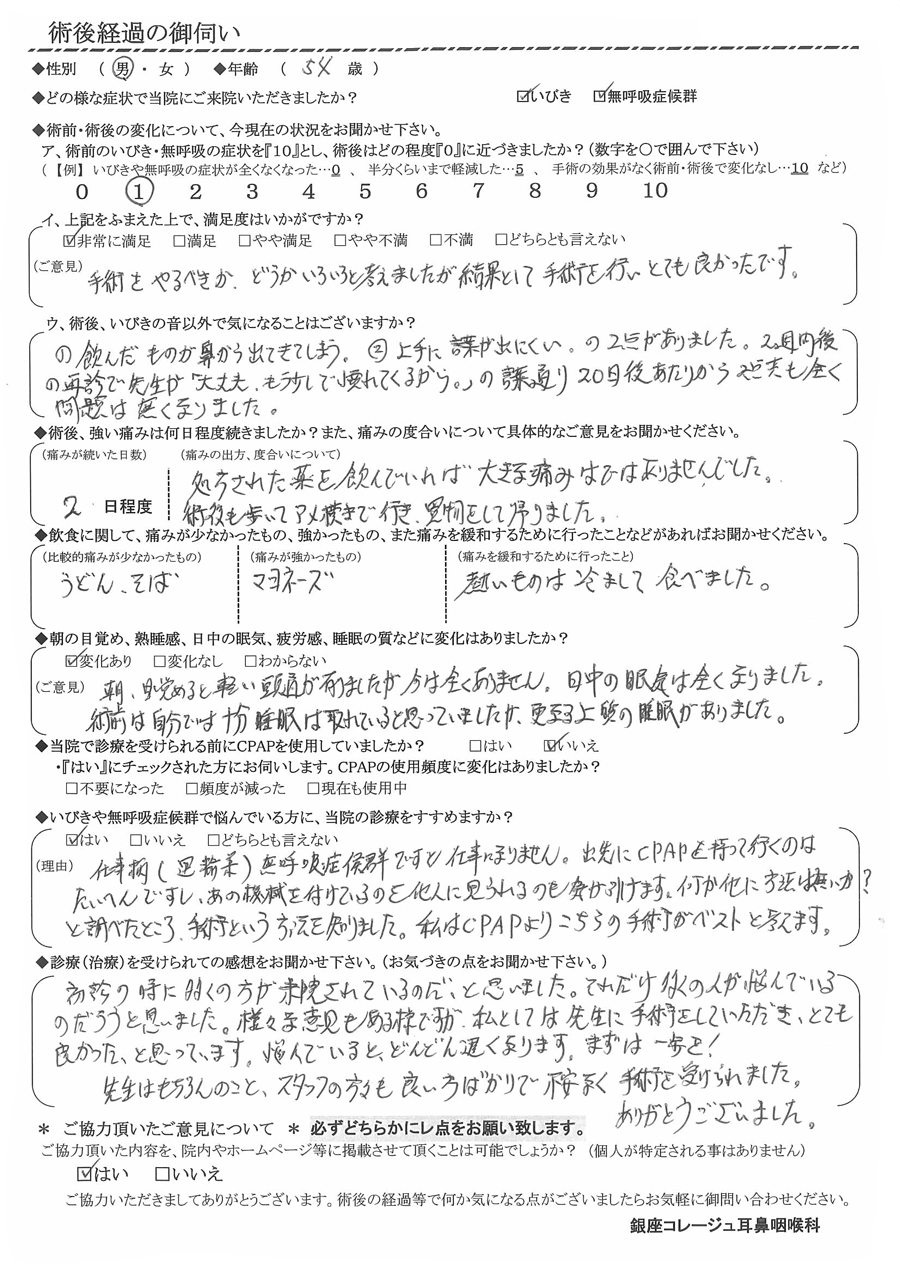 術後経過の御伺い
◆性別 ( 男 ・ 女 ) ◆年齢 ( 54 歳 )
◆どの様な症状で当院にご来院いただきましたか? ☑いびき ☑無呼吸症候群
◆術前・術後の変化について、今現在の状況をお聞かせ下さい。
ア、術前のいびき・無呼吸の症状を『10』とし、術後はどの程度『0』に近づきましたか?(数字を○で囲んで下さい)
(【例】いびきや無呼吸の症状が全くなくなった…0 、 半分くらいまで軽減した…5 、 手術の効果がなく術前・術後で変化なし…10 など)
0 1 2 3 4 5 6 7 8 9 10
イ、上記をふまえた上で、満足度はいかがですか?
☑非常に満足 □満足 □やや満足 □やや不満 □不満 □どちらとも言えない
(ご意見) 手術をやるべきか、どうかいろいろと考えましたが結果として手術を行いとても良かったです。
ウ、術後、いびきの音以外で気になることはございますか?
の 飲んだものが鼻から出てきてしまう。② 上手に言葉が出にくい。の2点がありました。2週間後
の再診で先生が「大丈夫、もう少しで慣れてくるから。」の言葉通り20日後あたりから2点共も全く
問題は無くなりました。
◆術後、強い痛みは何日程度続きましたか?また、痛みの度合いについて具体的なご意見をお聞かせください。
(痛みが続いた日数) (痛みの出方、度合いについて)
処方された薬を飲んでいれば大きな痛みはありませんでした。
2 日程度 術後も歩いてアメ横まで行き、買物をして帰りました。
◆飲食に関して、痛みが少なかったもの、強かったもの、また痛みを緩和するために行ったことなどがあればお聞かせください。
(比較的痛みが少なかったもの) (痛みが強かったもの) (痛みを緩和するために行ったこと)
うどん、そば マヨネーズ 熱いものは冷まして食べました。
◆朝の目覚め、熟睡感、日中の眠気、疲労感、睡眠の質などに変化はありましたか?
☑変化あり □変化なし □わからない
(ご意見) 朝、目覚めると軽い頭痛が有りましたが今は全くありません。日中の眠気は全くなりました。
術前は自分では十分睡眠は取れていると思っていましたが、更なる上質の睡眠がありました。
◆当院で診療を受けられる前にCPAPを使用していましたか? □はい ☑いいえ
・『はい』にチェックされた方にお伺いします。CPAPの使用頻度に変化はありましたか?
□不要になった □頻度が減った □現在も使用中
◆いびきや無呼吸症候群で悩んでいる方に、当院の診療をすすめますか?
☑はい □いいえ □どちらとも言えない
(理由) 仕事柄(運輸業)無呼吸症候群ですと仕事になりません。出先にCPAPを持って行くのは
たいへんですし、あの機械を付けているのを他人に見られるのも気が引けます。何か他に方法は無いか?
と調べたところ、手術という方法を知りました。私はCPAPよりこちらの手術がベストと考えます。
◆診療(治療)を受けられての感想をお聞かせ下さい。(お気づきの点をお聞かせ下さい。)
初診の時に多くの方が来院されているのだ、と思いました。それだけ多くの人が悩んでいる
のだろうと思いました。様々な意見もある様ですが、私としては先生に手術をしていただき、とても
良かった、と思っています。悩んでいると、どんどん遅くなります。まずは一歩を!
先生はもちろんのこと、スタッフの方々も良い方ばかりで不安なく手術を受けられました。
ありがとうございました。
* ご協力頂いたご意見について * 必ずどちらかにレ点をお願い致します。
ご協力頂いた内容を、院内やホームページ等に掲載させて頂くことは可能でしょうか? (個人が特定される事はありません)
☑はい □いいえ
ご協力いただきましてありがとうございます。術後の経過等で何か気になる点がございましたらお気軽に御問い合わせください。
銀座コレージュ耳鼻咽喉科